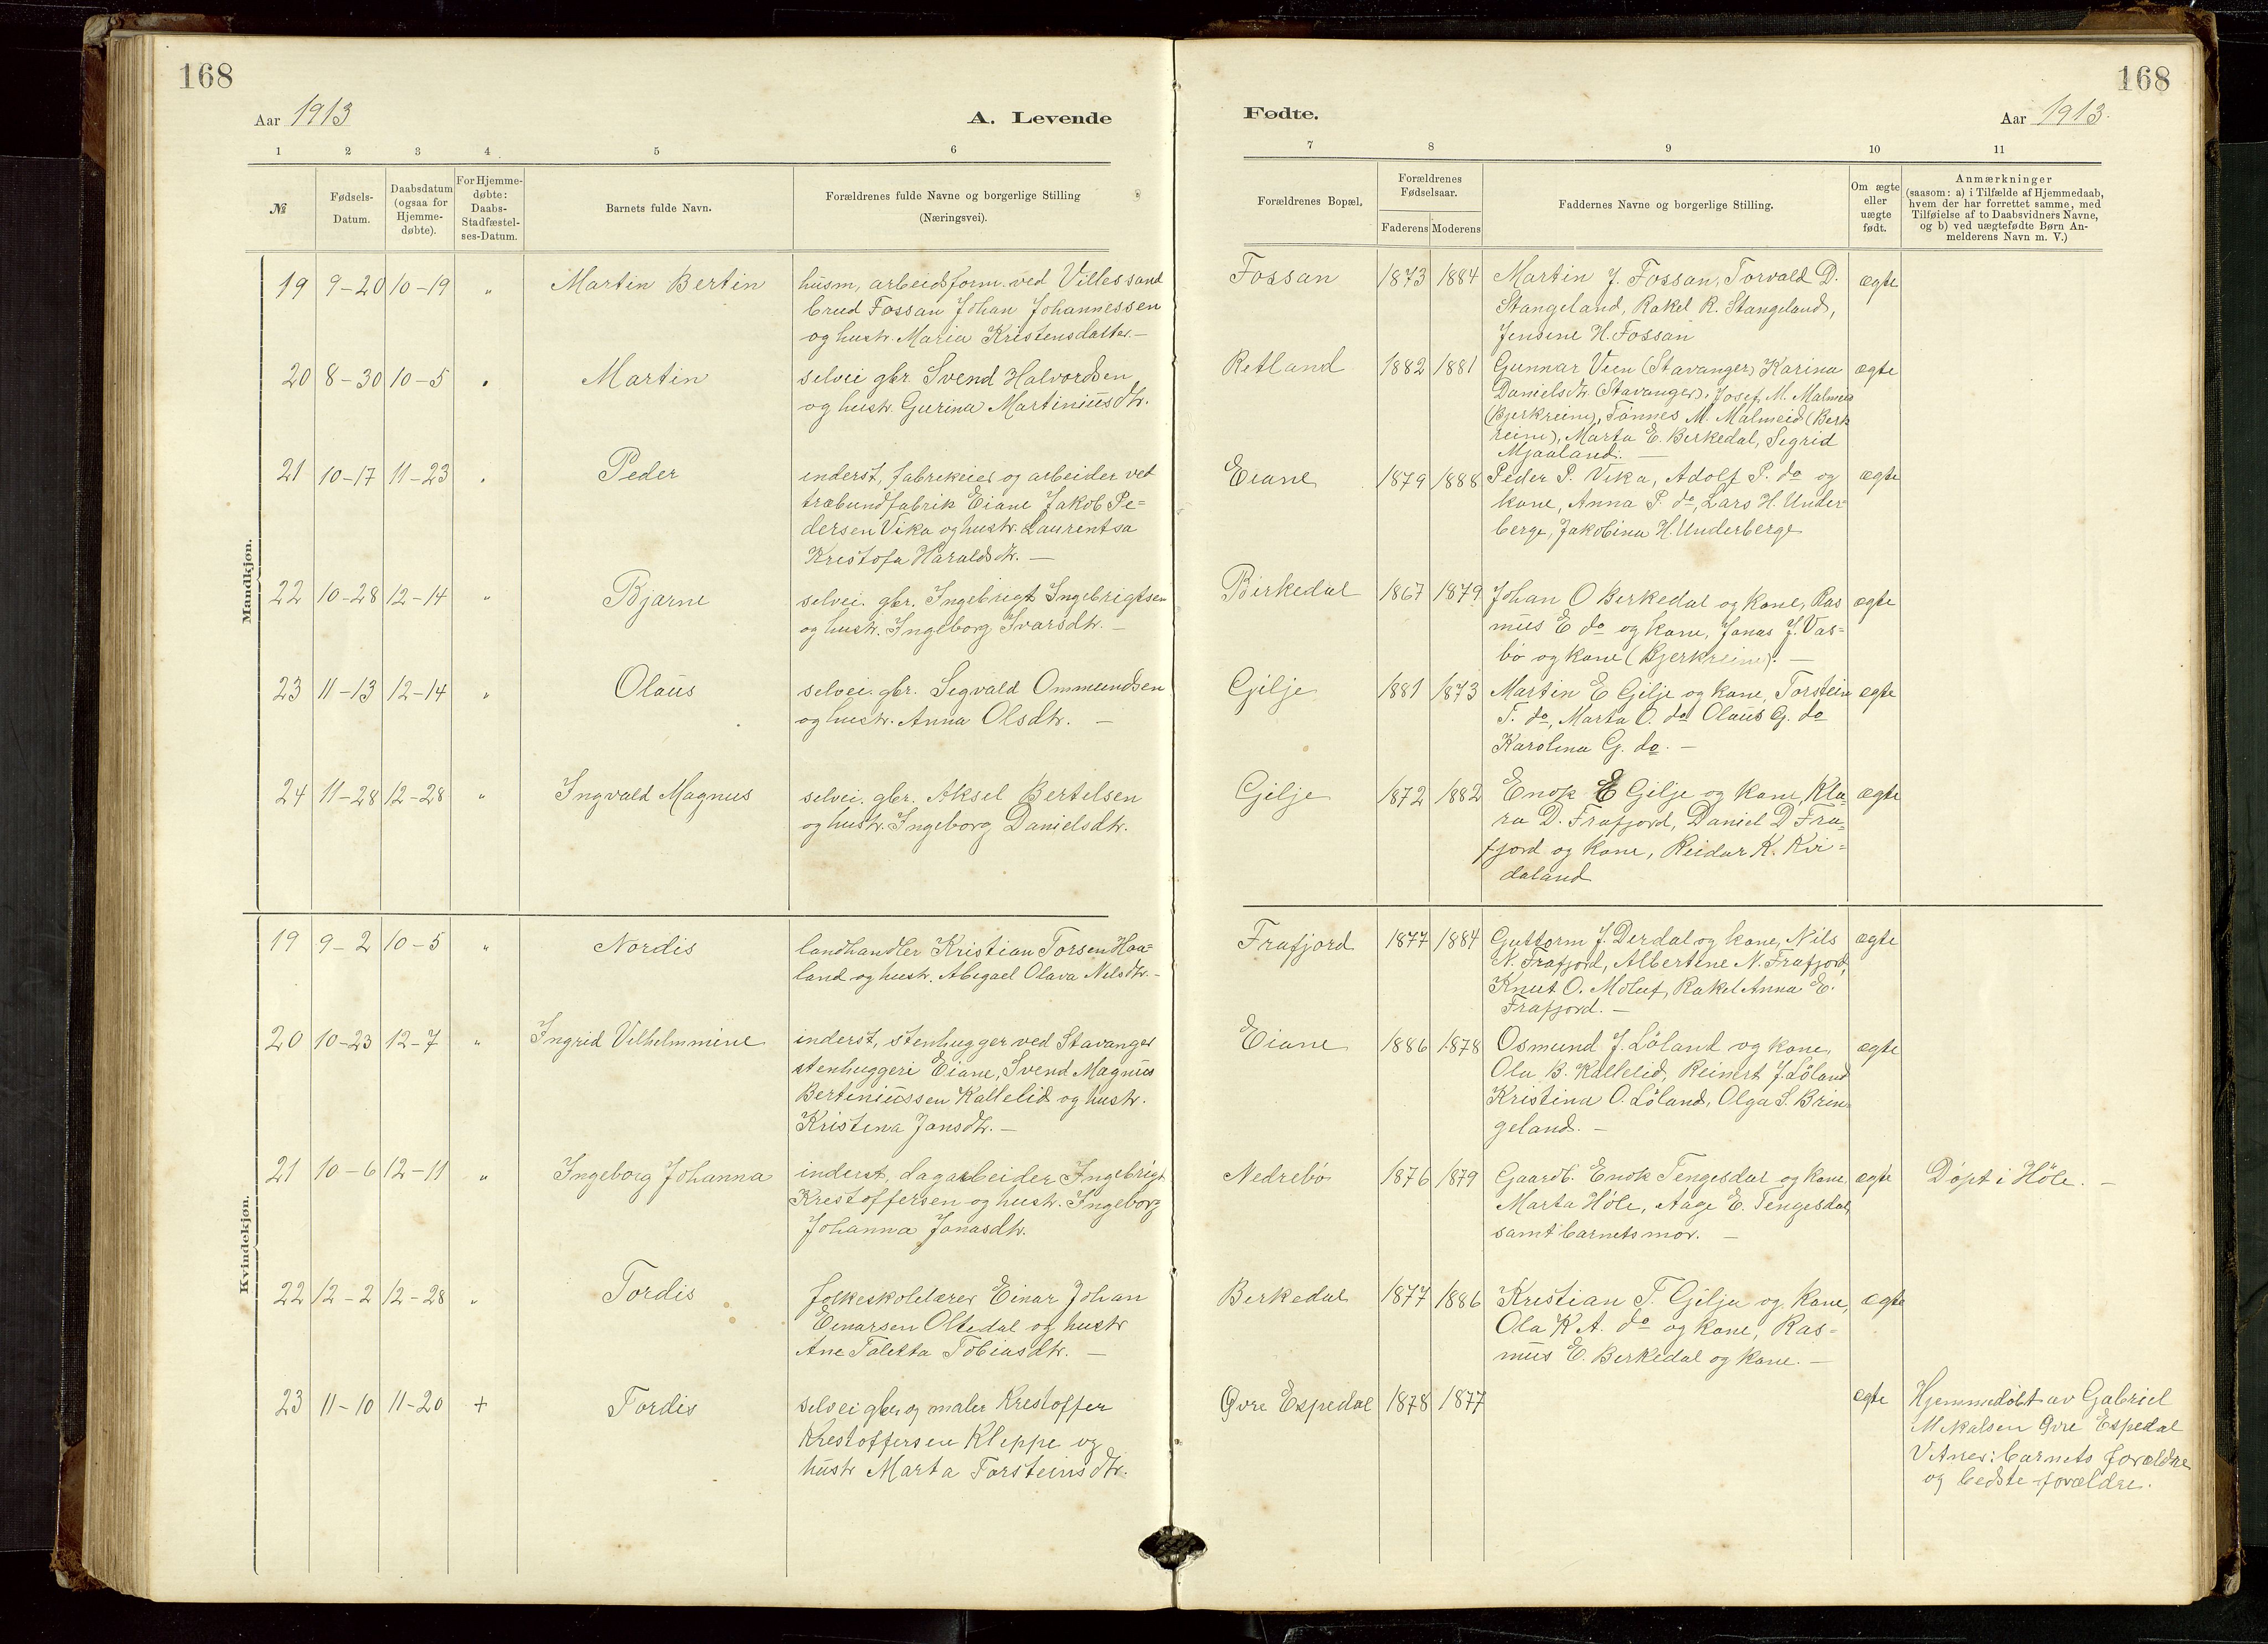 168
Aar 1913
A. Levende
1 2 3 4 5 6
№
Fødsels-
Datum.
Daabsdatum
(ogsaa for
Hjemme-
døbte).
For Hjemme-
døbte:
Daabs-
Stadfæstel-
ses-Datum.
Barnets fulde Navn.
Forældrenes fulde Navne og borgerlige Stilling
(Næringsvei).
Mandkjøn.
19 9-20 10-19 " Martin Bertin husm, arbeidsform. ved Villes sand
brud Fossan Johan Johannessen
og hustr. Maria Kristensdatter.—
20 8-30 10-5 " Martin selvei gbr. Svend Halvordsen
og hustr. Gurina Martiniusdtr.
21 10-17 11-23 " Peder inderst, fabrikeier og arbeider ved
træbundfabrik Eiane Jakob Pe=
dersen Vika og hustr. Laurentsa
Kristofa Haraldsdtr. —
22 10-28 12-14 " Bjarne selvei. gbr. Ingebrigt Ingebrigtsen
og hustr. Ingeborg Ivarsdtr. —
23 11-13 12-14 " Olaus selvei. gbr. Segvald Ommundsen
og hustr. Anna Olsdtr. —
24 11-28 12-28 " Ingvald Magnus selvei. gbr. Aksel Bertelsen
og hustr. Ingeborg Danielsdtr.
Kvindekjøn.
19 9-2 10-5 " Nordis landhandler Kristian Torsen Haa=
land og hustr. Abigael Olava Nilsdtr. —
20 10-23 12-7 " Ingrid Vilhelmmine inderst, stenhugger ved Stavanger
stenhuggeri Eiane, Svend Magnus
Bertiniussen Kallelid og hustr.
Kristina Jonsdtr. —
21 10-6 12-11 " Ingeborg Johanna inderst, dagarbeider Ingebrigt
Kristoffersen og hustr. Ingeborg
Johanna Jonasdtr.
22 12-2 12-28 " Tordis folkeskolelærer Einar Johan
Einarsen Oltedal og hustr
Ane Taletta Tobiasdtr. —
23 11-10 11-20 + Tordis selvei gbr og maler Kristoffer
Kristoffersen Kleppe og
hustr Marta Torsteinsdtr.
168
Fødte.
Aar 1913.
7 8 9 10 11
Forældrenes Bopæl,
Forældrenes
Fødselsaar.
Faderens Moderens
Faddernes Navne og borgerlige Stilling.
Om ægte
eller
uægte
født.
Anmærkninger
(saasom: a) i Tilfælde af Hjemmedaab,
hvem der har forrettet samme, med
Tilføielse af to Daabsvidners Navne,
og b) ved uægtefødte Børn An-
melderens Navn m. V.)
Fossan 1873 1884 Martin J. Fossan, Torvald D. ægte
Stangeland, Rakel R. Stangeland,
Jensine H. Fossan
Retland 1882 1881 Gunnar Veen (Stavanger) Karina ægte
Danielsdtr. (Stavanger), Josef M. Malmeid
(Bjerkreim), Tønnes M. Malmeid (Berk
reim), Marta E. Berkedal, Segrid
Mjaaland. —
Eiane 1879 1888 Peder P. Vika, Adolf P. do og ægte
kone, Anna P. do, Lars H. Under=
berge, Jakobina H. Underberge
Birkedal 1867 1879 Johan O Berkedal og kone, Ras ægte
mus E do og kone, Jonas J. Vas=
bø og kone (Bjerkreim). —
Gilje 1881 1873 Martin E Gilje og kone, Torstein ægte
T. do, Marta O. do Olaus G. do
Karolina G. do. —
Gilje 1872 1882 Enok E Gilje og kone, Kla= ægte
ra D. Frafjord, Daniel D Fra=
fjord og kone, Reidar K. Kvi=
daland
Frafjord 1877 1884 Guttorm J. Derdal og kone, Nils ægte
N. Frafjord, Albertine N. Frafjord,
Knut O. Moluf, Rakel Anna E.
Frafjord. —
Eiane 1886 1878 Osmund J. Löland og kone, ægte
Ola B. Kallelid, Reinert J. Löland
Kristina O. Löland, Olga S. Brin
geland. —
Nedrebø 1876 1879 Gaardb. Enok Tengesdal og kone, ægte Døpt i Høle. —
Marta Høle, Aage E. Tengesdal,
samt barnets mor. —
Berkedal 1877 1886 Kristian T. Gilja og kone, ægte
Ola K A. do og kone, Ras=
mus E. Berkedal og kone. —
Øvre Espedal 1878 1877 ægte Hjemmedøbt av Gabriel
Mikalsen Øvre Espedal
Vitner: barnets forældre
og bedste forældre.